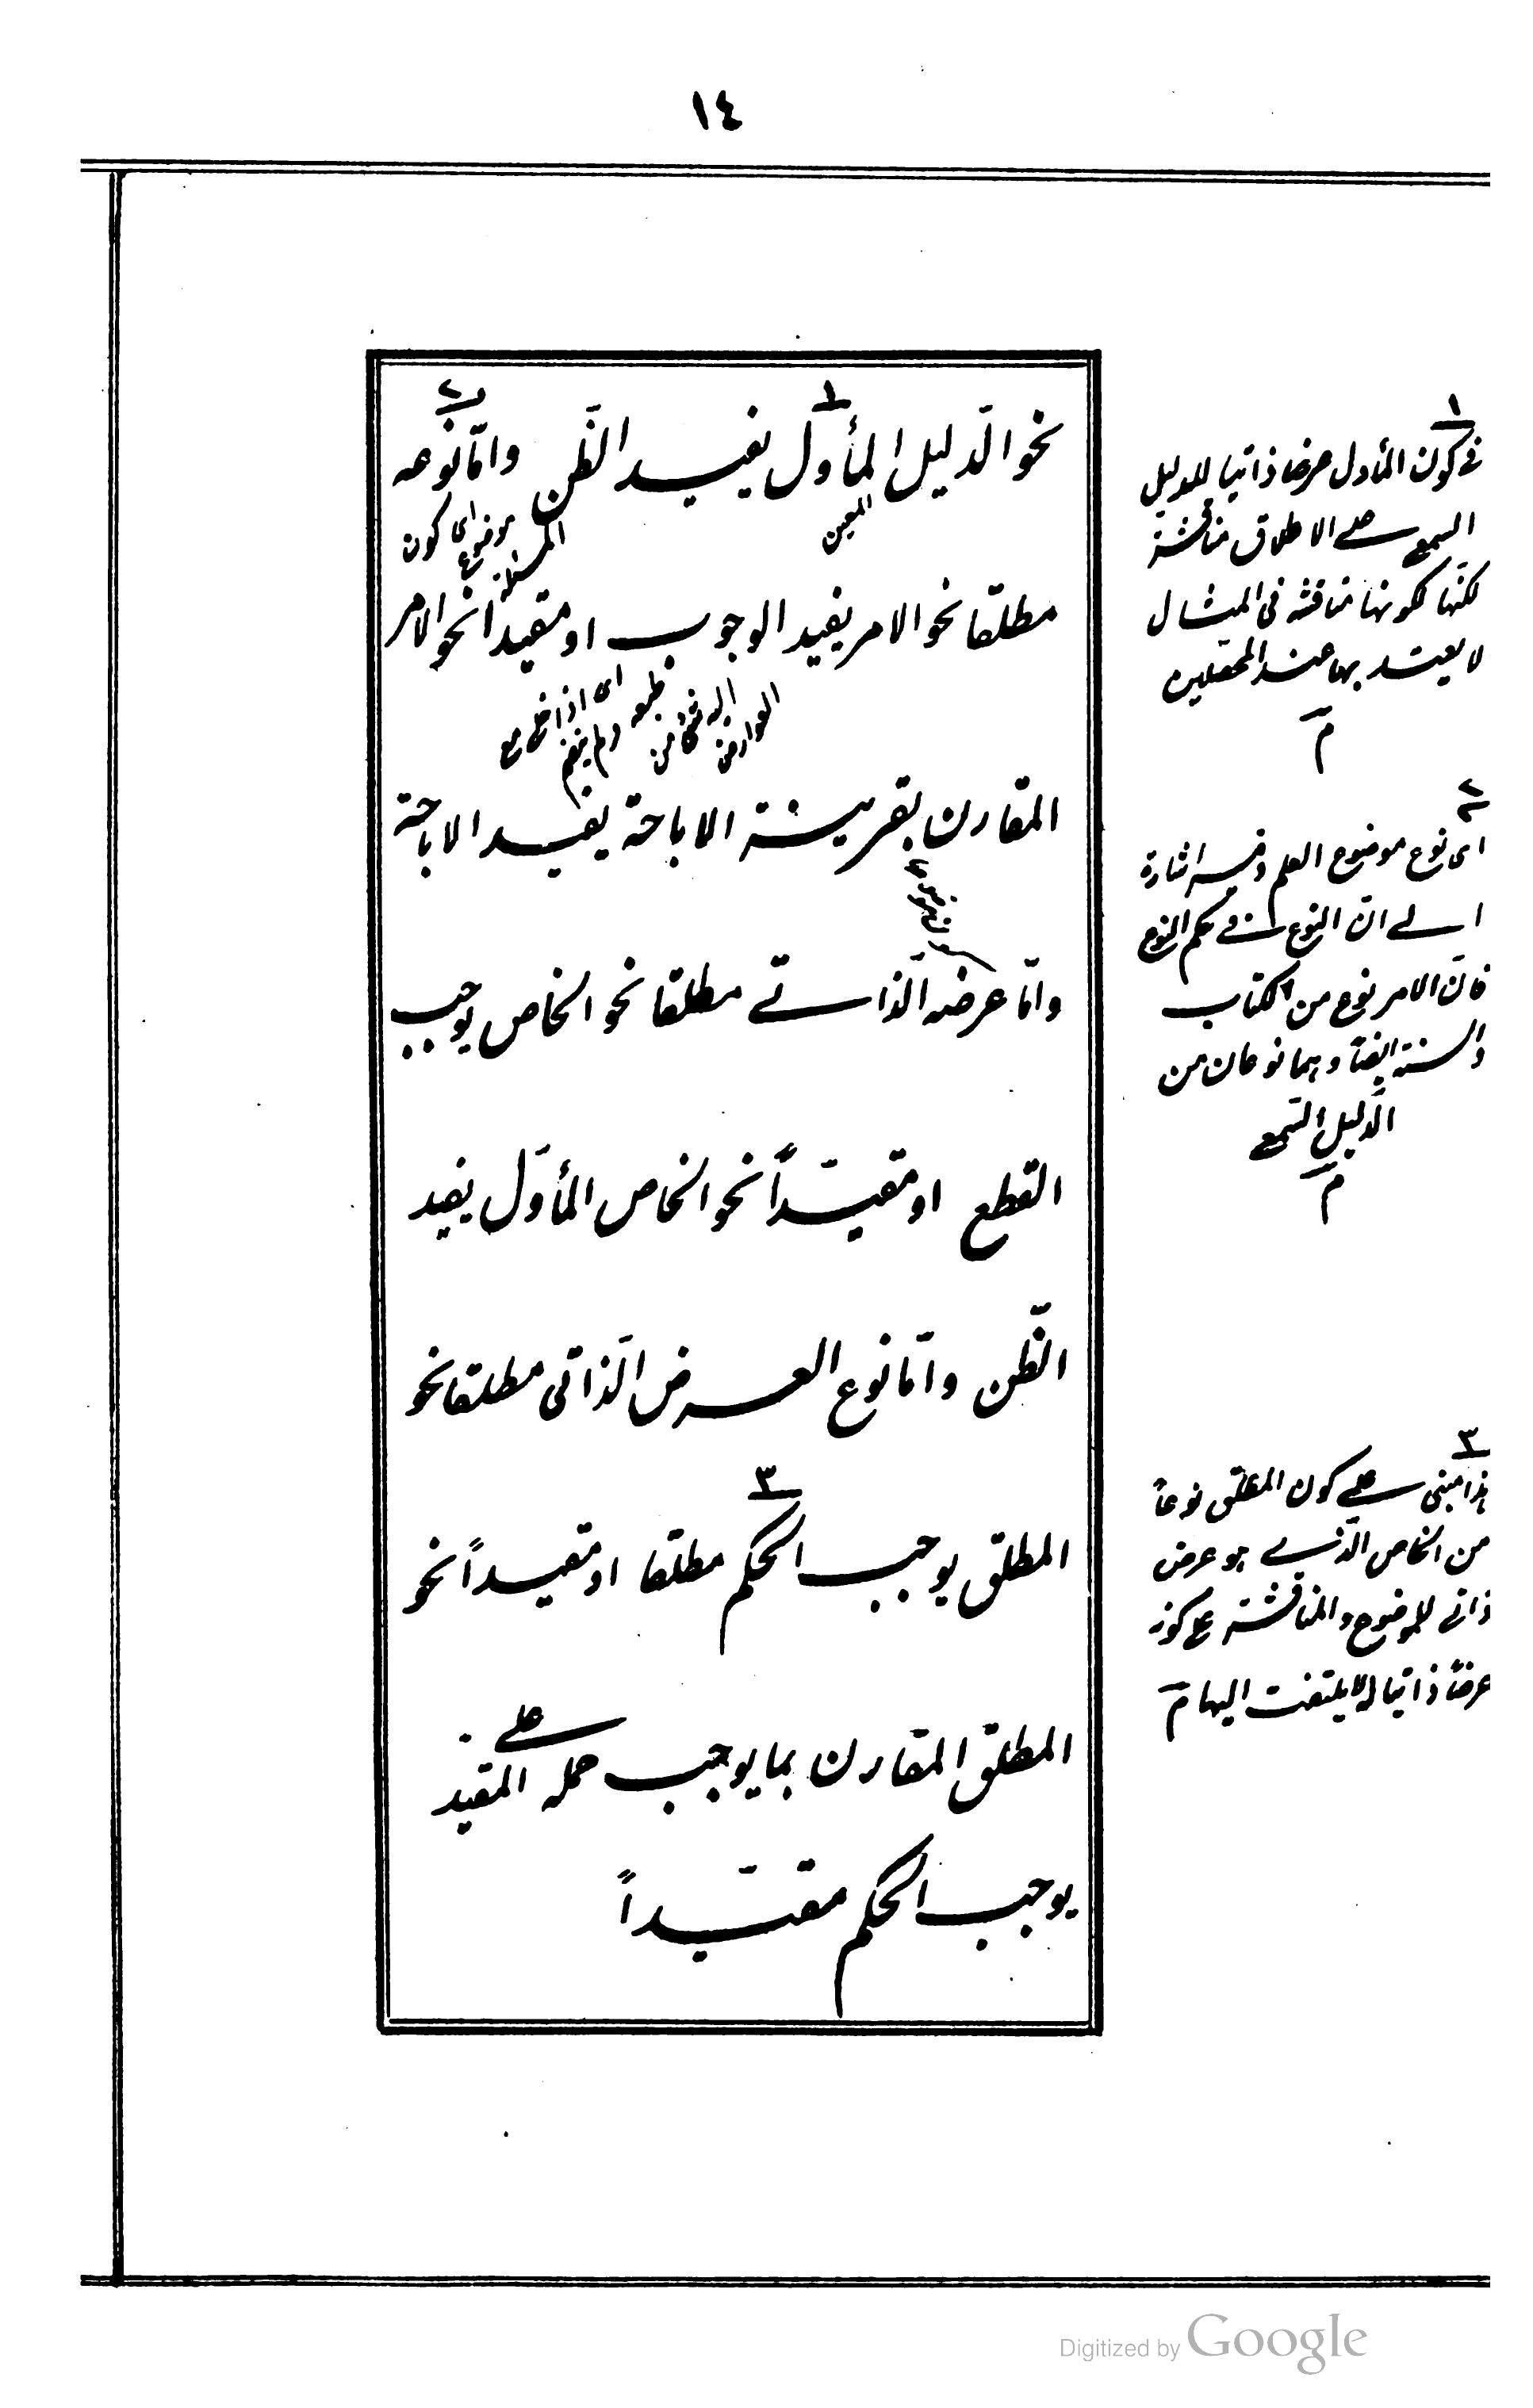 ١٤
نحو الدّليل المأوّل يفيد الظّن وامّا نوعه
المعين
المسئلة
اى كون
موضوع
مطلقا نحو الامر يفيد الوجوب او مقيدا نحو الامر
اى اذا
العوارض
المقارن بقرينة الاباحة يفيد الاباحة
وامّا عرضه الّذاتے مطلقا نحو الخاص يوجب
القطع او مقيّداً نحو الخاص المأوّل يفيد
الظّن وامّا نوع العرض الّذاتى مطلقا نحو
٣
المطلق يوجب الحكم مطلقا او مقيداً نحو
المطلق المقارن بما يوجب حمله علے المقيد
يوجب الحكم مقيّداً
١
فے كون المأول عرضا ذاتيا للدليل
السمعے علے الاطلاق مناقشة
لكنّها لكونها مناقشة فى المثال
لا يعتد بها عند المحصلين
م
٢
اى نوع موضوع العلم وفيه اشارة
الے انّ النوع نوع فے حكم النوع
فانّ الامر نوع من الكتاب
والسنة ايضا وهما نوعان من
الدّليل السّمعے
م
٣
هذا مبنى علے كون المطلق نوعاً
من الخاص الّذے هو عرض
ذاتے للموضوع والمناقشة فے كونه
عرضاً ذاتيا له لا يلتفت اليها م
Digitized by Google